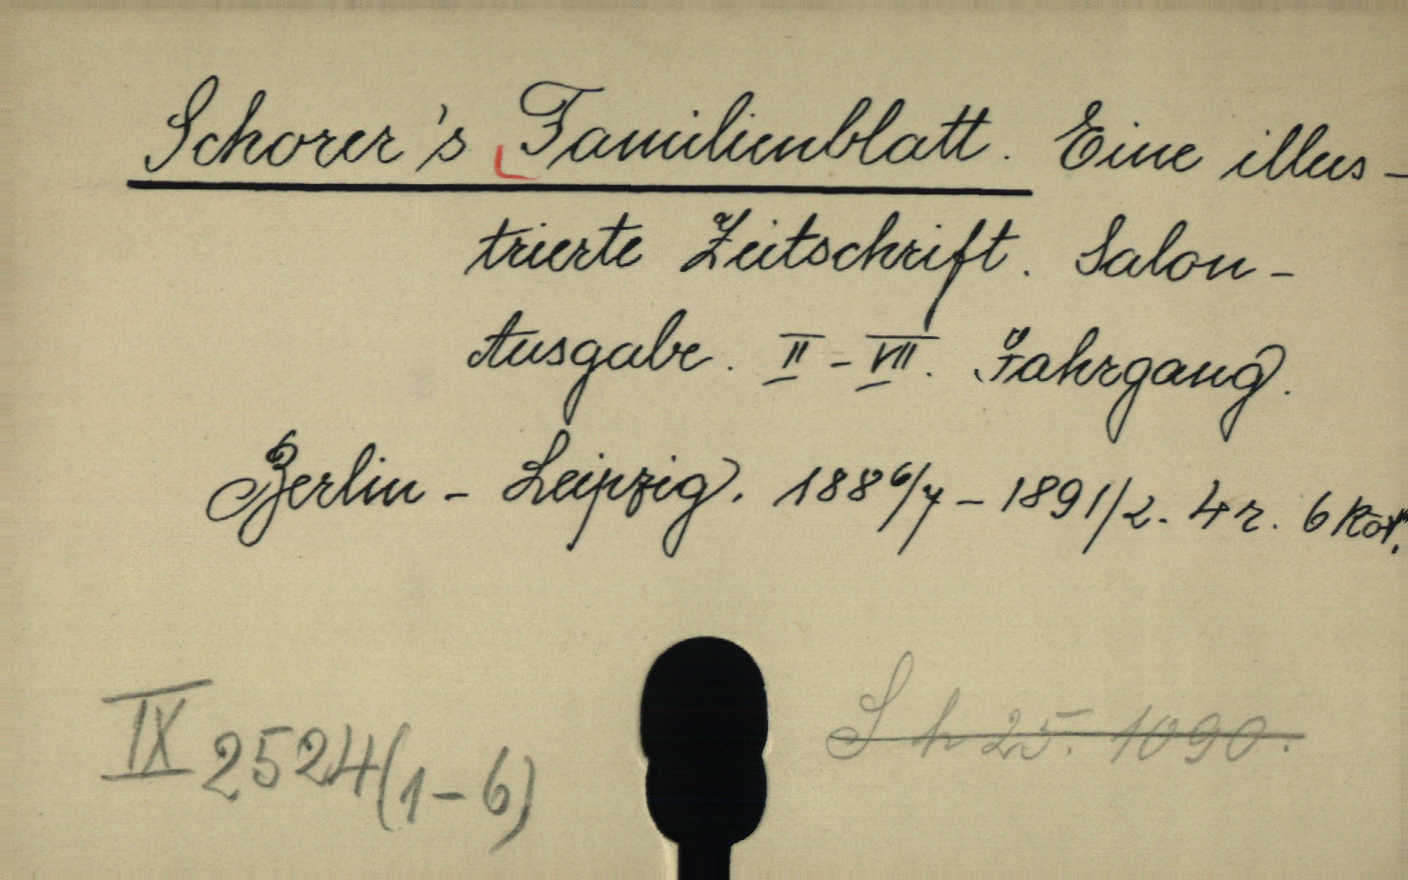 Schorer's Familienblatt. Eine illus-
trierte Zeitschrift. Salon-
Ausgabe. II - VII. Jahrgang.
Berlin - Leipzig. 1886/7 - 1891/2. 4 r. 6 Köt.
IX 2524(1-6)
S h 25. 1090.